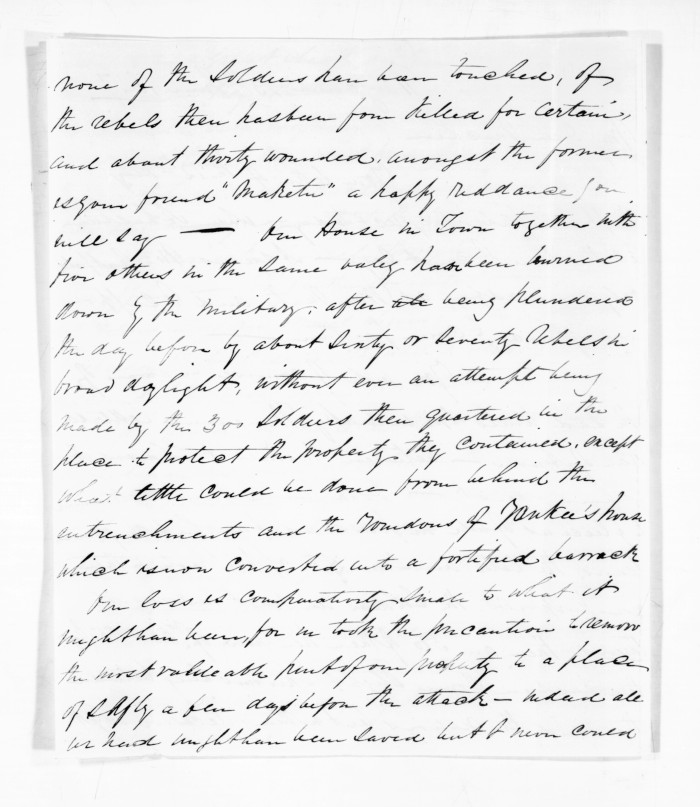 none of the Soldiers have been touched, of
the rebels there has been four killed for certain,
and about thirty wounded, amongst the former
is your friend "Maketu" a happy riddance you
will say — Our House in Town together with
five others in the same valey has been burned
down by the military, after being plundered
the day before by about sixty or seventy rebels in
broad daylight, without even an attempt being
made by the 300 Soldiers then quartered in the
place to protect the property they contained, except
what little could be done from behind the
entrenchments and the windows of Yankee's house
which is now converted into a fortified barrack
Our loss is comparatively small to what it
might have been, for we took the precaution to remove
the most valueable part of our property to a place
of safety a few days before the attack — indeed all
we had might have been saved but I never could